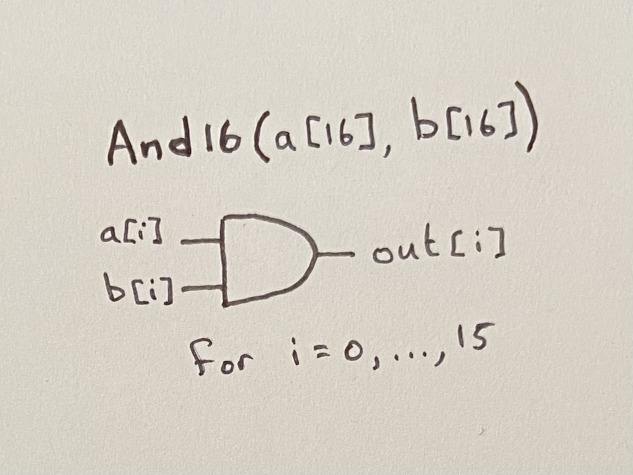 And16(a[16], b[16])
a[i]
out[i]
b[i]
for i = 0, ..., 15